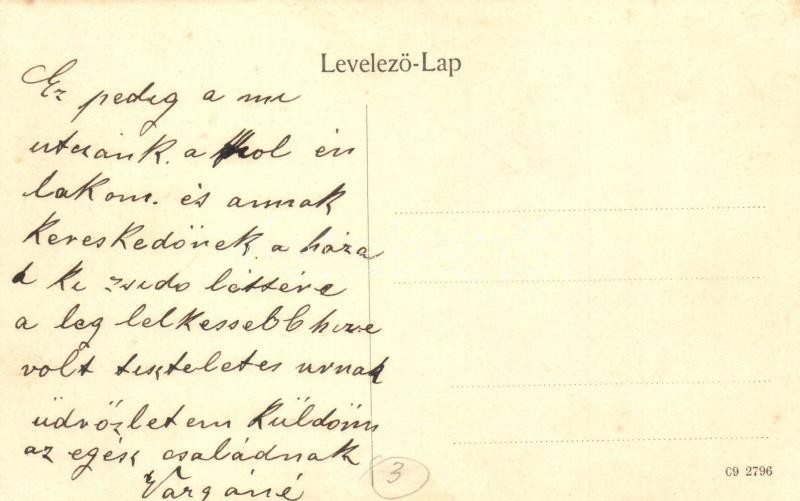 Levelezö-Lap
Ez pedig a mi
utcánk. a hol én
lakom. és annak
kereskedőnek a háza
a ki zsido léttére
a leg lelkessebb hive
volt tiszteletes urnak
üdvözletem küldöm
az egész családnak
Vargáné
3
C9 2796